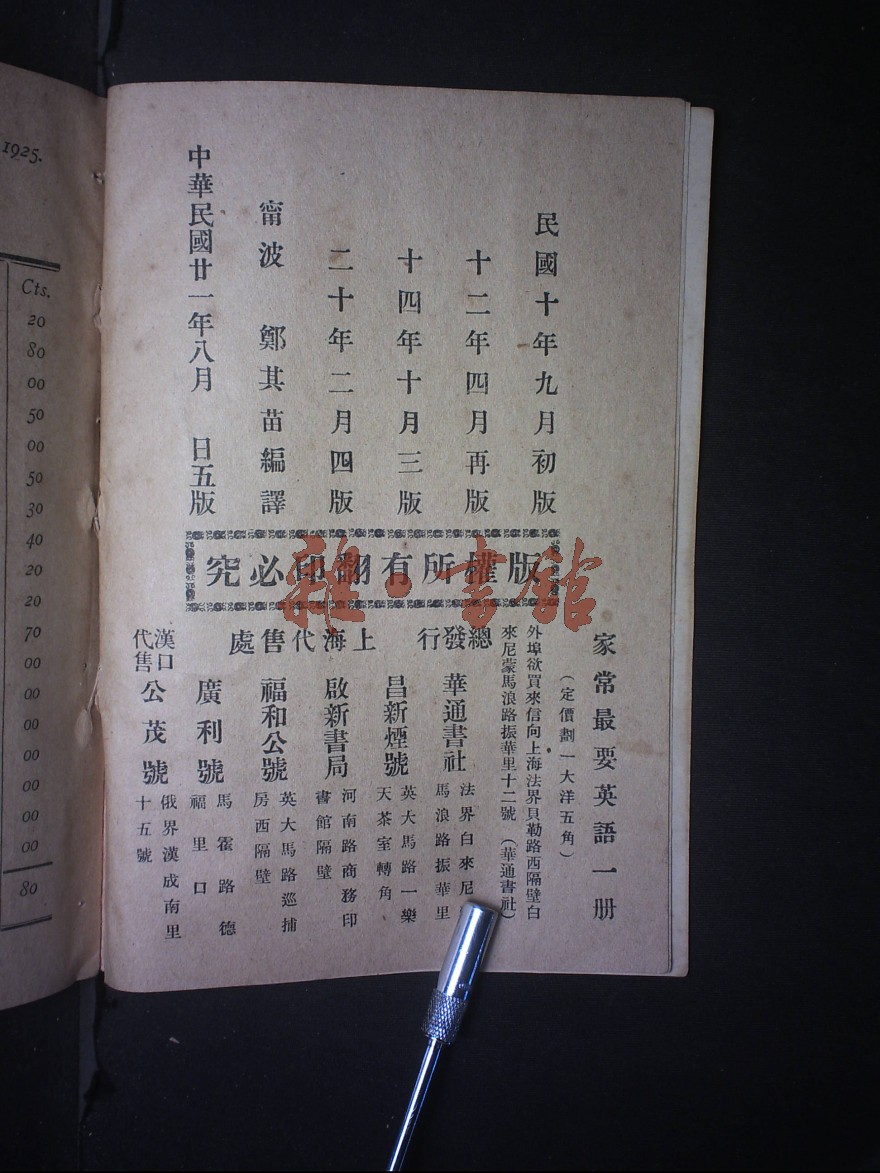 民國十年九月初版
十二年四月再版
十四年十月三版
二十年二月四版
甯波 鄭其苗編譯
中華民國廿一年八月 日五版
版權所有翻印必究
家常最要英語一册
(定價劃一大洋五角)
外埠欲買來信向上海法界貝勒路西隔壁白
來尼蒙馬浪路振華里十二號 (華通書社)
總發行
華通書社
法界白來尼
馬浪路振華里
上海代售處
昌新煙號
英大馬路一樂
天茶室轉角
啟新書局
河南路商務印
書館隔壁
福和公號
英大馬路巡捕
房西隔壁
廣利號
馬霍路德
福里口
漢口
代售
公茂號
俄界漢成南里
十五號
雜·書館
1925.
Cts.
20
80
00
50
00
50
30
40
20
20
70
00
00
00
00
00
00
00
80